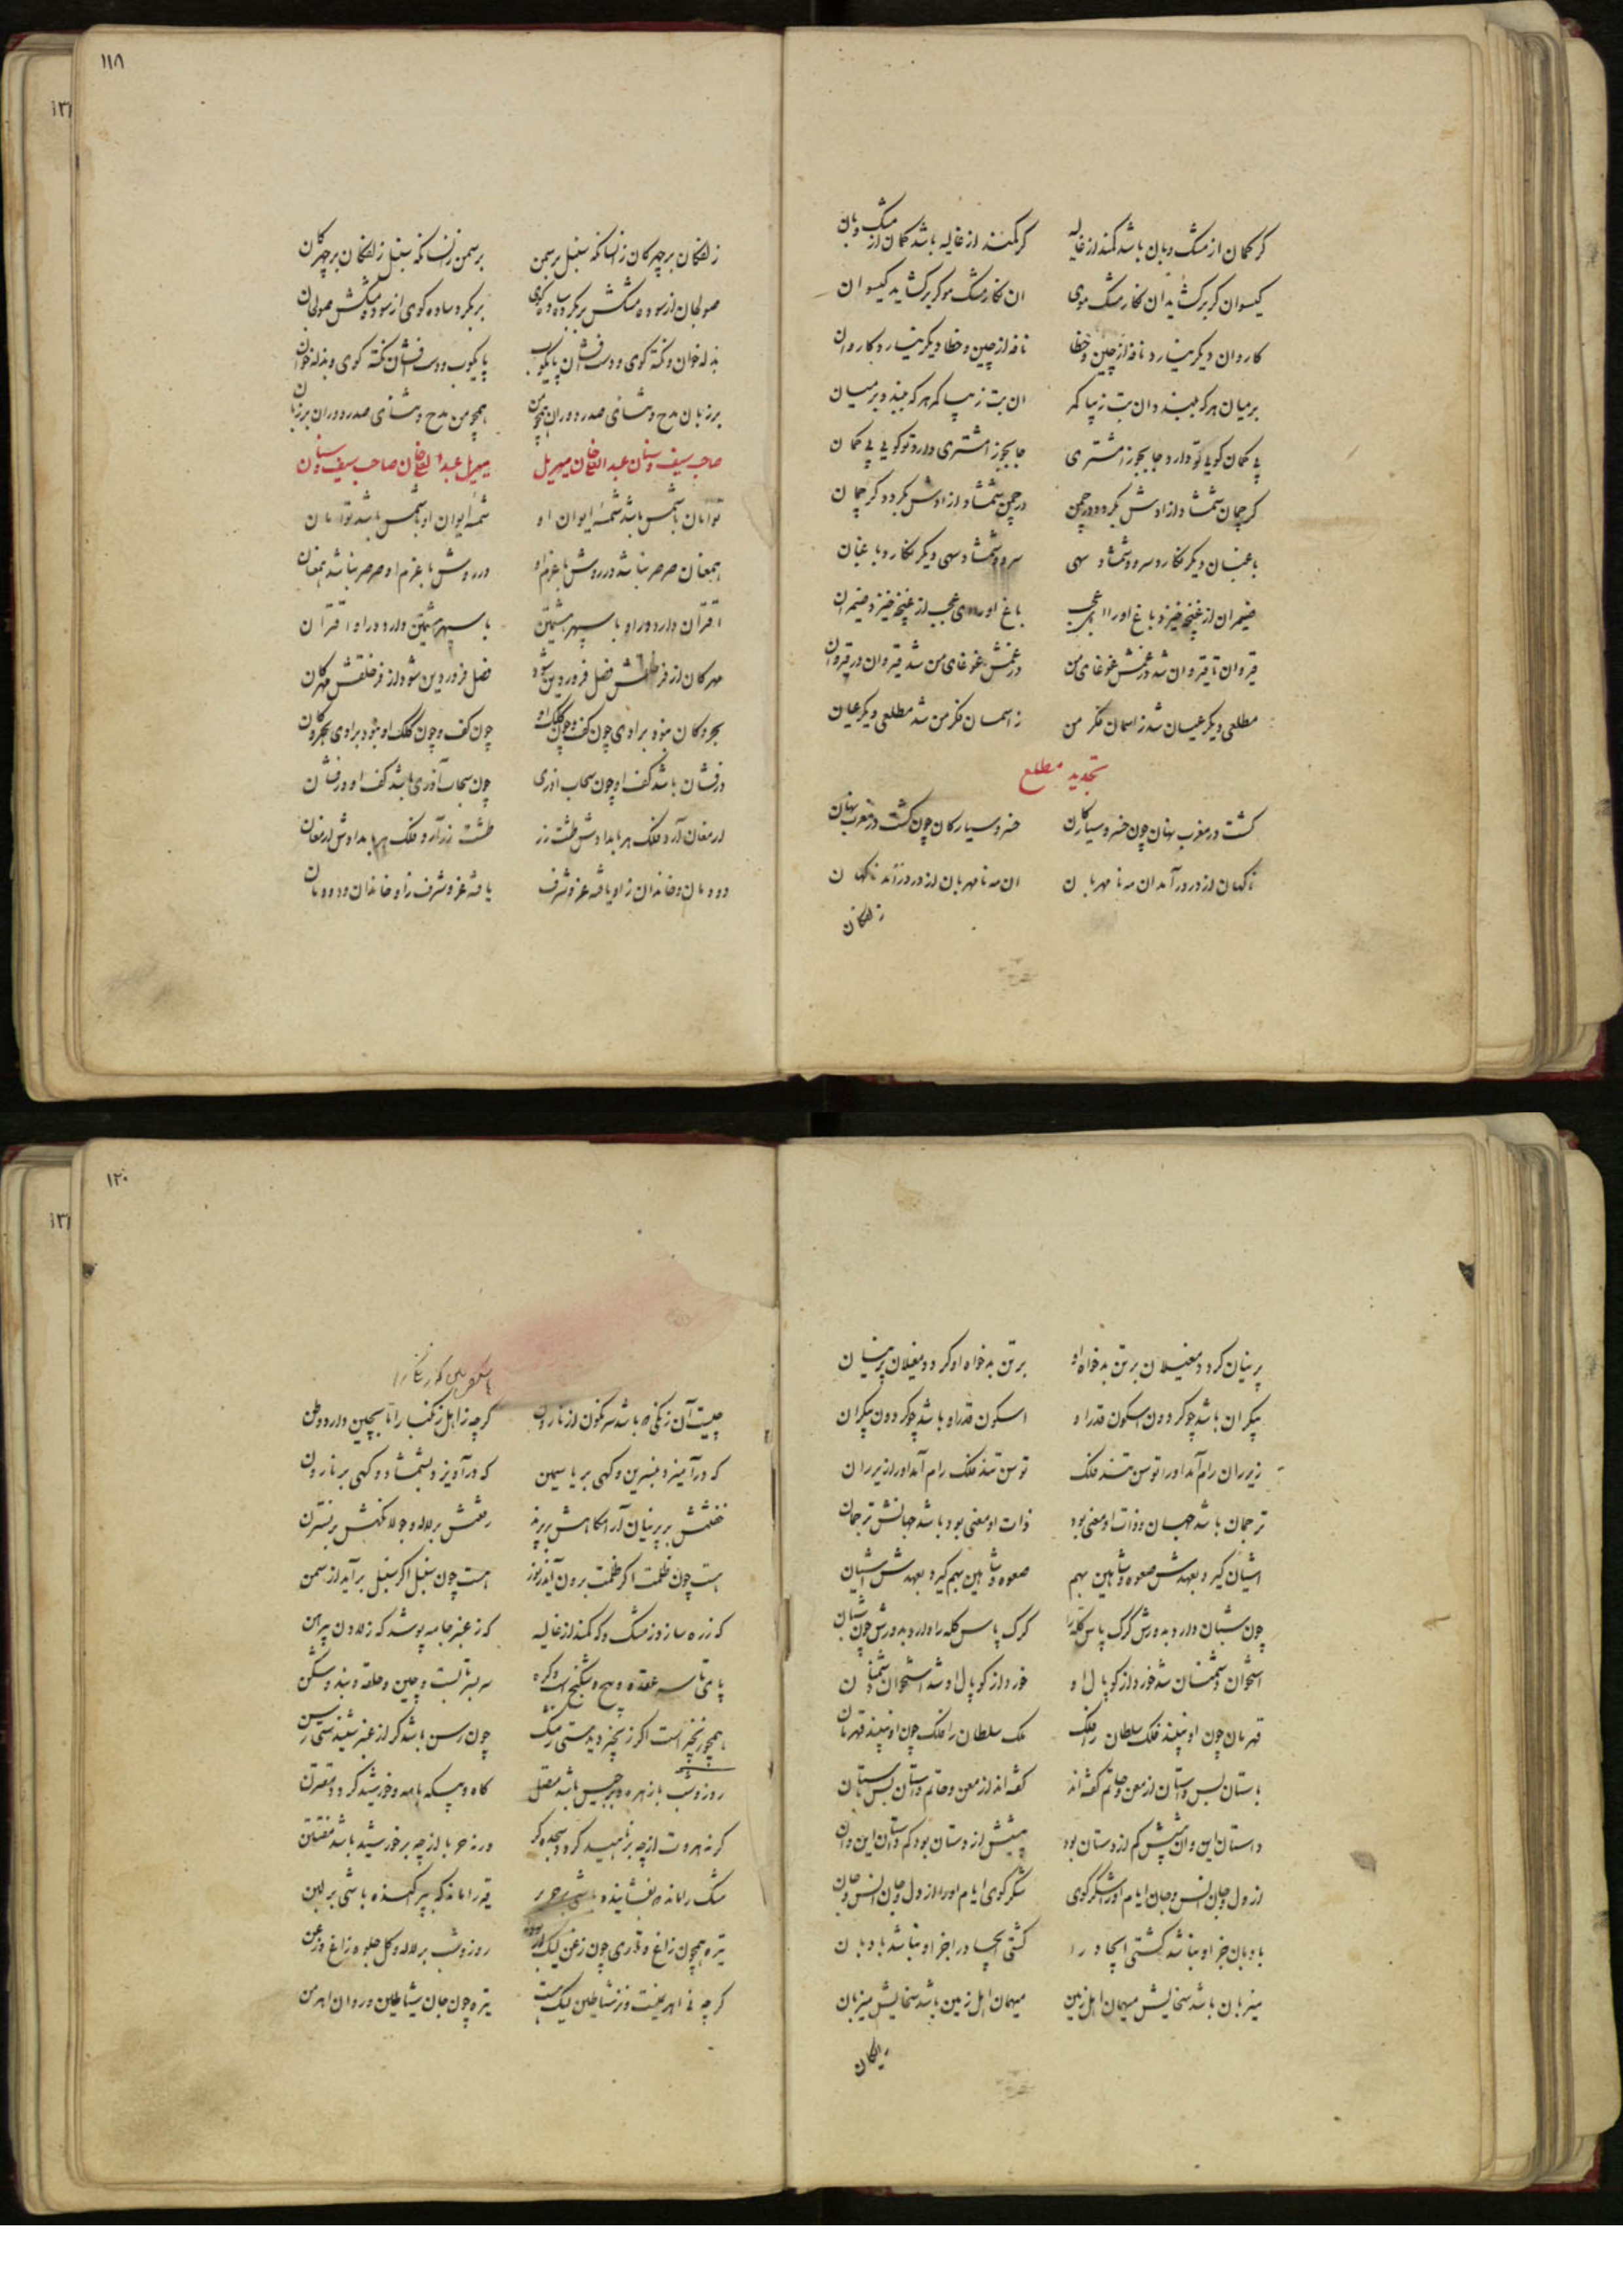 کر کمان از مشک و بان باشد کمند از غالیه کر کمند از غالیه باشد کمان از مشک و بان
کیسوان کر برکشاید ان نکار مشک موی ان نکار مشک مو کر برکشاید کیسوان
کاروان دیکر نیارد نافه از چین و خطا نافه از چین و خطا دیکر نیارد کاروان
بر میان هر که ببیند ان بت زیبا کمر ان بت زیبا کمر هر که ببیند بر میان
پی کمان کویی تو دارد جا بجوز امشتری جا بجوز امشتری دارد تو کویی پی کمان
کر چمان شمشاد ازادش بکردد در چمن در چمن شمشاد ازادش بکردد کر چمان
باغبان دیکر نکارد سرو و شمشاد سهی سرو و شمشاد سهی دیکر نکارد باغبان
ضیمران از غنچه خیزد باغ اورا ای عجب باغ اورا ای عجب از غنچه خیزد ضیمران
قیروان تا قیروان شد در غمش غوغای من در غمش غوغای من شد قیروان در قیروان
مطلعی دیکر عیان شد ز اسمان فکر من ز اسمان فکر من شد مطلعی دیکر عیان
تجدید مطلع
کشت در مغرب نهان چون خسرو سیارکان خسرو سیارکان چون کشت در مغرب نهان
ناکهان از در درآمد ان مه نا مهربان ان مه نا مهربان از در درآمد ناکهان
زلفکان
۱۱۸
زلفکان بر چهرکان زانسانکه سنبل بر سمن بر سمن زانسانکه سنبل زلفکان بر چهرکان
صولجان از سوده مشکش بر بکرد ساده کوی بر بکرد ساده کوی از سوده مشکش صولجان
بذله خوان و نکته کوی و دست افشان پایکوب پایکوب و دست افشان نکته کوی و بذله خوان
بر زبان مدح و ثنای صدر دوران همچو من همچو من مدح و ثنای صدر دوران بر زبان
صاحب سیف و سنان عبدالله خان میریل میریل عبدالله خان صاحب سیف و سنان
توامان با شمس باشد شمسهٔ ایوان او شمسهٔ ایوان او با شمس باشد توامان
همعنان صرصر نباشد در روش با عزم او در روش با عزم او صرصر نباشد همعنان
اقتران دارد در او با سپهر هشتمین با سپهر هشتمین دارد در او اقتران
مهرکان از فر خلقش فصل فروردین شود فصل فروردین شود از فر خلقش مهرکان
بحر و کان نبود برادی چون کف و چون کلک او چون کف و چون کلک او نبود برادی بحر و کان
درفشان باشد کف او چون سحاب اذری چون سحاب آذری باشد کف او درفشان
ارمغان آرد فلک هر بامدادش طشت زر طشت زر آرد فلک هر بامدادش ارمغان
دودمان و خاندان زاو یافته عز و شرف یافته عز و شرف زاو خاندان و دودمان
پرنیان کردد مغیلان بر تن بدخواه او بر تن بدخواه او کردد مغیلان پرنیان
بیکران باشد چو کردون اسکون قدر او اسکون قدر او باشد چو کردون بیکران
زیر ران رام آمد اورا توسن تند فلک توسن تند فلک رام آمد اورا زیر ران
ترجمان باشد جهان و ذات او معنی بود ذات او معنی بود باشد جهانش ترجمان
اشیان کیرد بعهدش صعوه و شاهین بهم صعوه و شاهین بهم کیرد بعهدش اشیان
چون شبان دارد بدورش کرک پاس کله را کرک پاس کله را دارد بدورش چون شبان
استخوان دشمنان شد خورد از کوپال او خورد از کوپال او شد استخوان دشمنان
قهرمان چون او نبیند فلک سلطان را فلک ملک سلطان را فلک چون او نبیند قهرمان
باستان بس داستان از معن و حاتم کفته اند کفته اند از معن و حاتم داستان بس باستان
داستان این و ان پیشش کم از دستان بود پیشش از دستان بود کم داستان این و ان
از دل و جان انس و جان ایام اورا شکر کوی شکر کوی ایام اورا از دل و جان انس و جان
بادبان جز او نباشد کشتی ایجاد را کشتی ایجاد را جز او نباشد بادبان
میزبان باشد سخایش میهمان اهل زمین میهمان اهل زمین باشد سخایش میزبان
رایکان
۱۲۰
چیست آن زنکی که باشد سرنکون از نارون کرچه ز اهل زنکبار اما بچین دارد وطن
که درآمیزد بنسرین و کهی بر یاسمین که درآویزد بشمشاد و کهی بر نارون
خفتنش بر پرنیان آرامکاهش بر پرند رفتنش بر لاله و جولانکهش بر نسترن
هست چون ظلمت اکر ظلمت برون آید ز نور هست چون سنبل اکر سنبل برآید از سمن
که زره سازد ز مشک و که کمند از غالیه که ز عنبر جامه پوشد که ز لادن پیرهن
پای تا سر عقده و پیچ و شکنج است و کره سر بسر تابست و چین و حلقه و بند و شکن
همچو زنجیر است اکر زنجیر دیدستی ز مشک چون رسن باشد کر از عنبر شنیدستی رسن
روز و شب با زهره و برجیس باشد متصل کاه و بیکه با مه و خورشید کردد مقترن
کر نه هاروت از چه بر ناهید کردد سجده کر ورنه حربا از چه بر خورشید باشد مفتتن
مشک را ماند که بفشانند بر حریر قیر را ماند که بپراکنده باشی بر لبن
تیره همچون زاغ و تاری چون زغن لیک روز و شب بر لاله و کل جلوهٔ زاغ و زغن
کرچه نه اهریمنست و نز شیاطین لیک هست تیره چون جان شیاطین و روان اهرمن